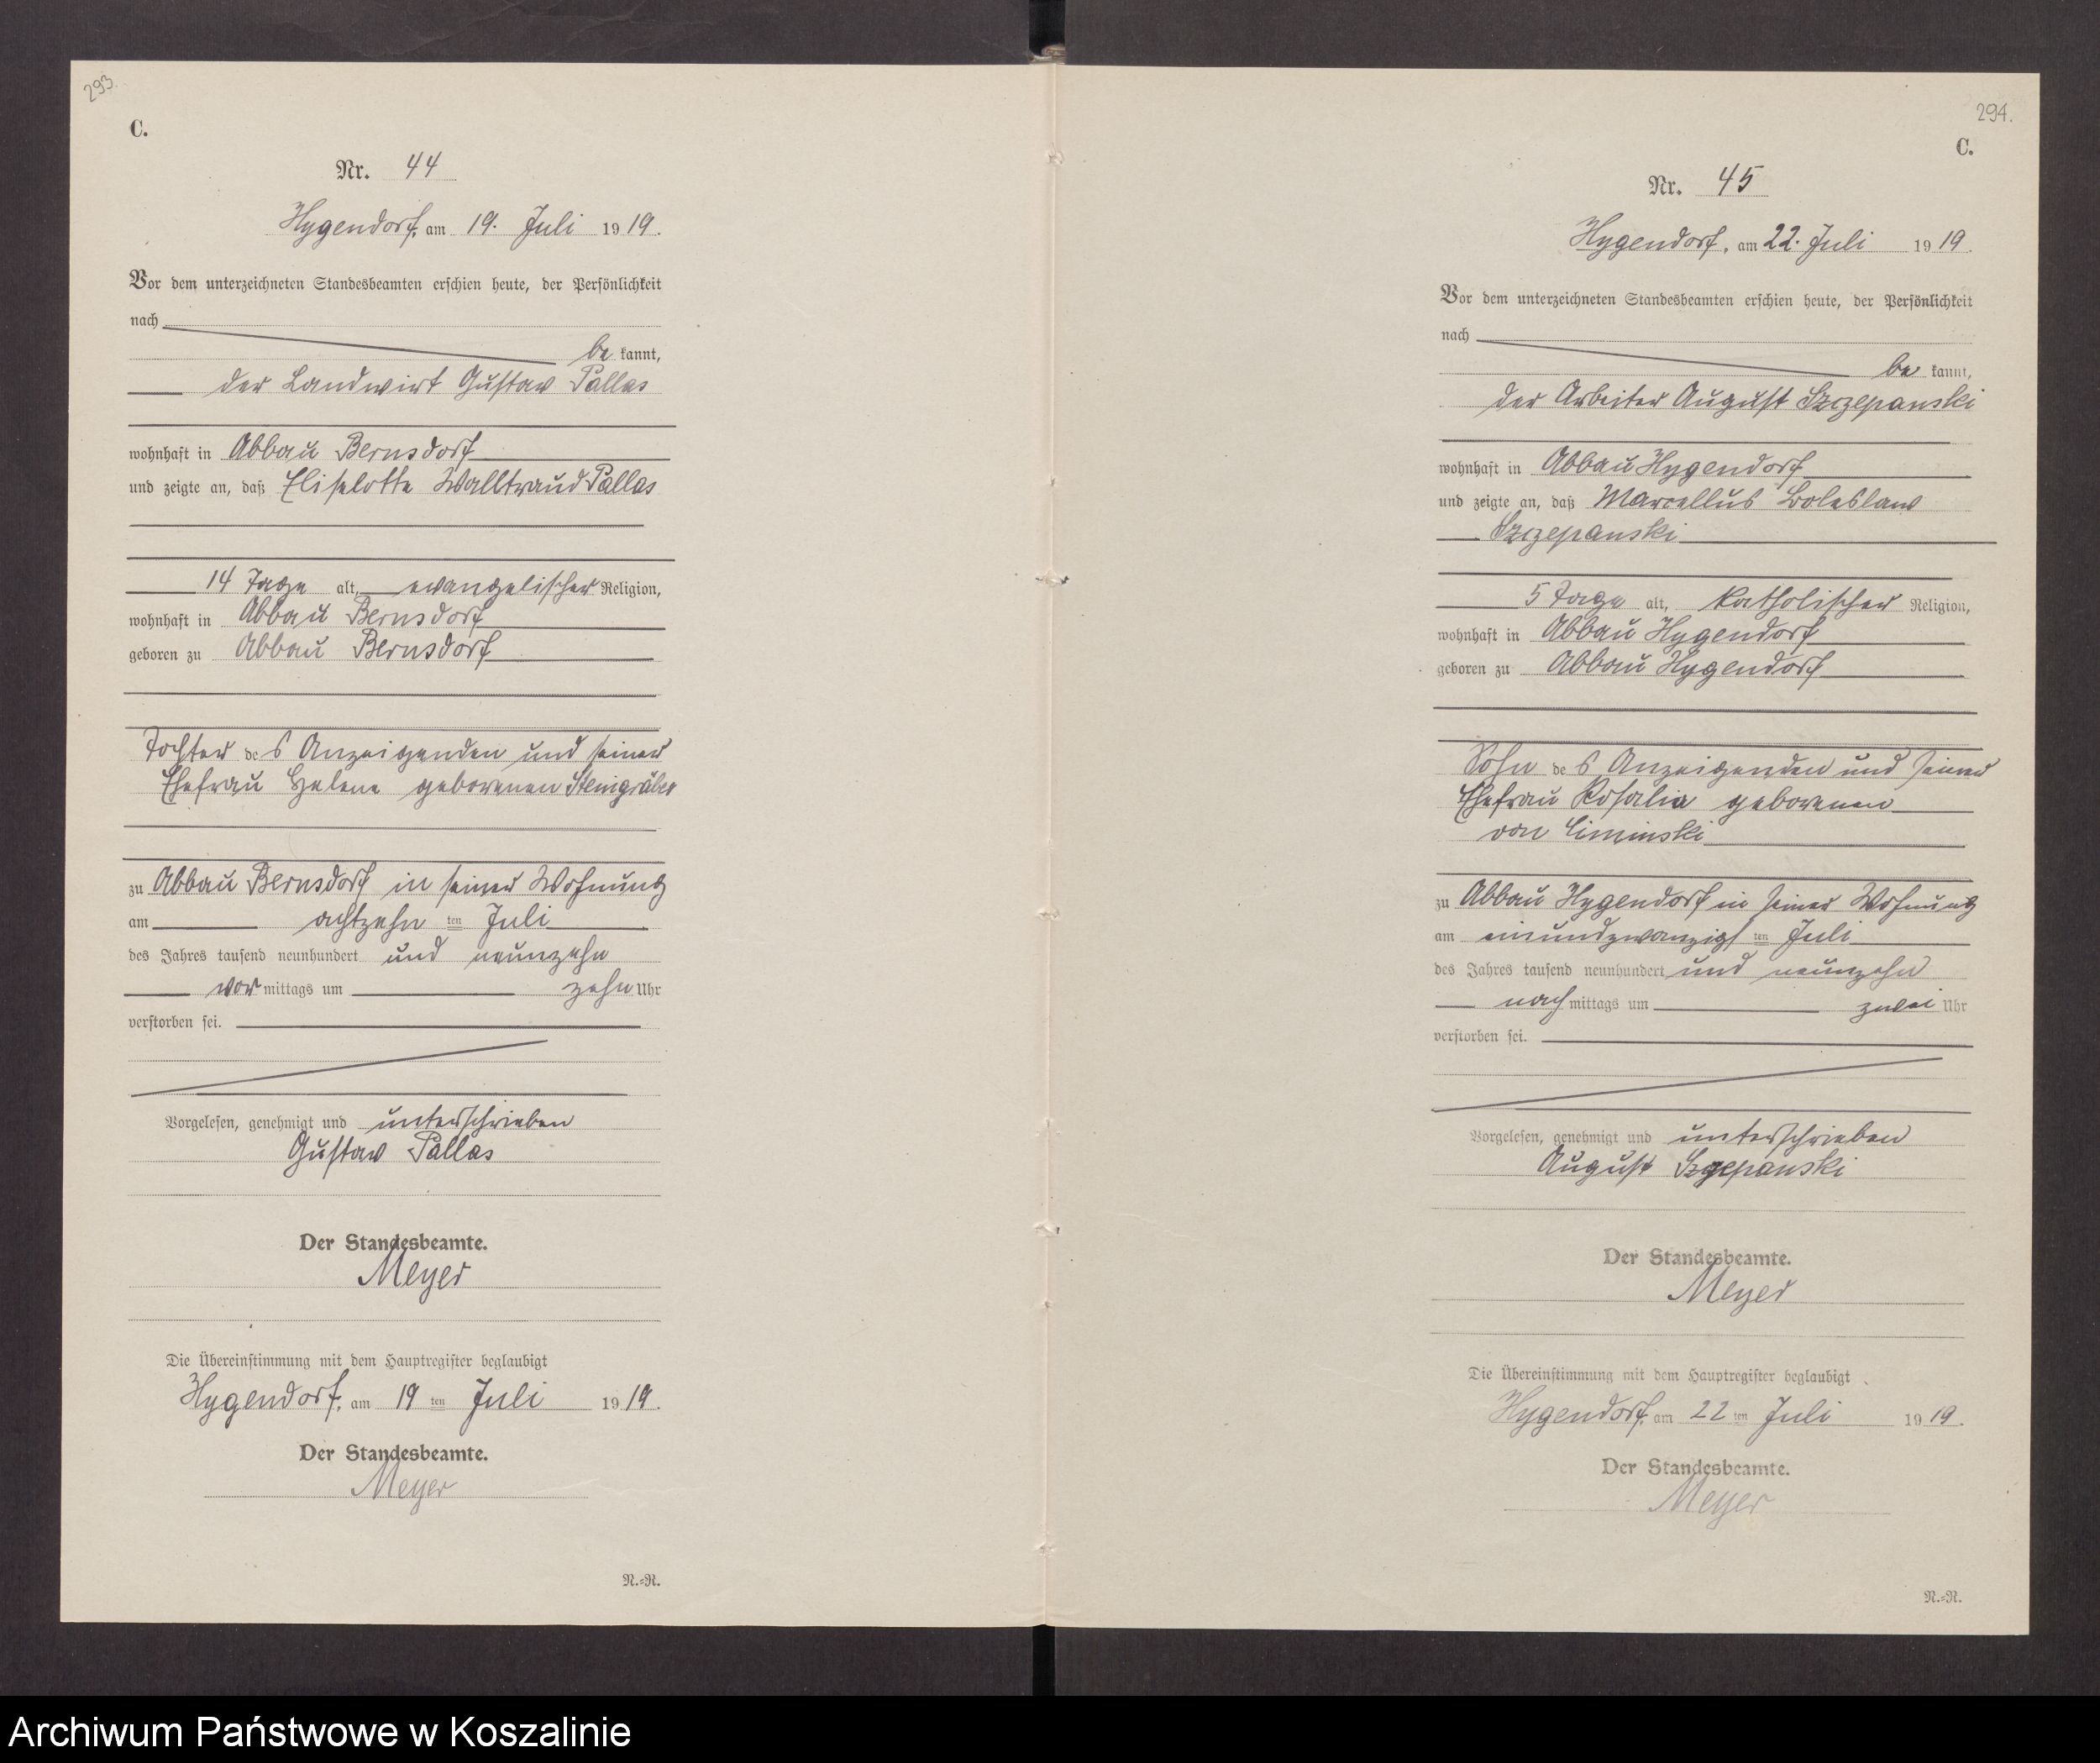 293.
C.
Nr. 44
Hygendorf, am 19. Juli 1919.
Vor dem unterzeichneten Standesbeamten erschien heute, der Persönlichkeit
nach
be kannt,
der Landwirt Gustav Pallas
wohnhaft in Abbau Bernsdorf
und zeigte an, daß Eliselotte Walltraud Pallas
14 Tage alt, evangelischer Religion,
wohnhaft in Abbau Bernsdorf
geboren zu Abbau Bernsdorf
Tochter des Anzeigenden und seiner
Ehefrau Helene geborenen Steingräber
zu Abbau Bernsdorf in seiner Wohnung
am achtzehn ten Juli
des Jahres tausend neunhundert und neunzehn
vor mittags um zehn Uhr
verstorben sei.
Vorgelesen, genehmigt und unterschrieben
Gustav Pallas
Der Standesbeamte.
Meyer
Die Übereinstimmung mit dem Hauptregister beglaubigt
Hygendorf, am 19 ten Juli 1919.
Der Standesbeamte.
Meyer
N.=N.
294.
C.
Nr. 45
Hygendorf, am 22. Juli 1919.
Vor dem unterzeichneten Standesbeamten erschien heute, der Persönlichkeit
nach
be kannt,
der Arbeiter August Szczepanski
wohnhaft in Abbau Hygendorf
und zeigte an, daß Marcellus Boleslaus
Szczepanski
5 Tage alt, katholischer Religion,
wohnhaft in Abbau Hygendorf
geboren zu Abbau Hygendorf
Sohn des Anzeigenden und seiner
Ehefrau Rosalia geborenen
von
zu Abbau Hygendorf in seiner Wohnung
am einundzwanzigs ten Juli
des Jahres tausend neunhundert und neunzehn
nach mittags um zwei Uhr
verstorben sei.
Vorgelesen, genehmigt und unterschrieben
August Szczepanski
Der Standesbeamte.
Meyer
Die Übereinstimmung mit dem Hauptregister beglaubigt
Hygendorf, am 22 ten Juli 1919.
Der Standesbeamte.
Meyer
N.=N.
Archiwum Państwowe w Koszalinie